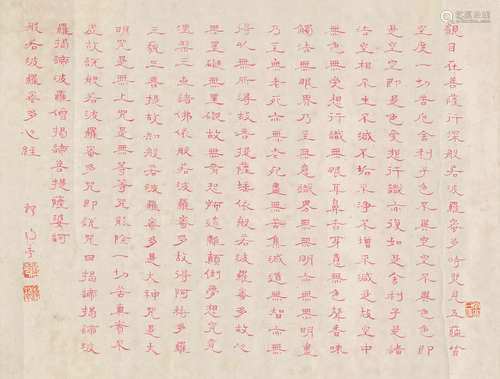 觀自在菩薩行深般若波羅蜜多時照見五蘊皆
空度一切苦厄舍利子色不異空空不異色色即
是空空即是色受想行識亦復如是舍利子是諸
法空相不生不滅不垢不淨不增不減是故空中
無色無受想行識無眼耳鼻舌身意無色聲香味
觸法無眼界乃至無意識界無無明亦無無明盡
乃至無老死亦無老死盡無苦集滅道無智亦無
得以無所得故菩提薩埵依般若波羅蜜多故心
無罣礙無罣礙故無有恐怖遠離顛倒夢想究竟
涅槃三世諸佛依般若波羅蜜多故得阿耨多羅
三藐三菩提故知般若波羅蜜多是大神咒是大
明咒是無上咒是無等等咒能除一切苦真實不
虛故說般若波羅蜜多咒即說咒曰揭諦揭諦波
羅揭諦波羅僧揭諦菩提薩婆訶
般若波羅蜜多心經